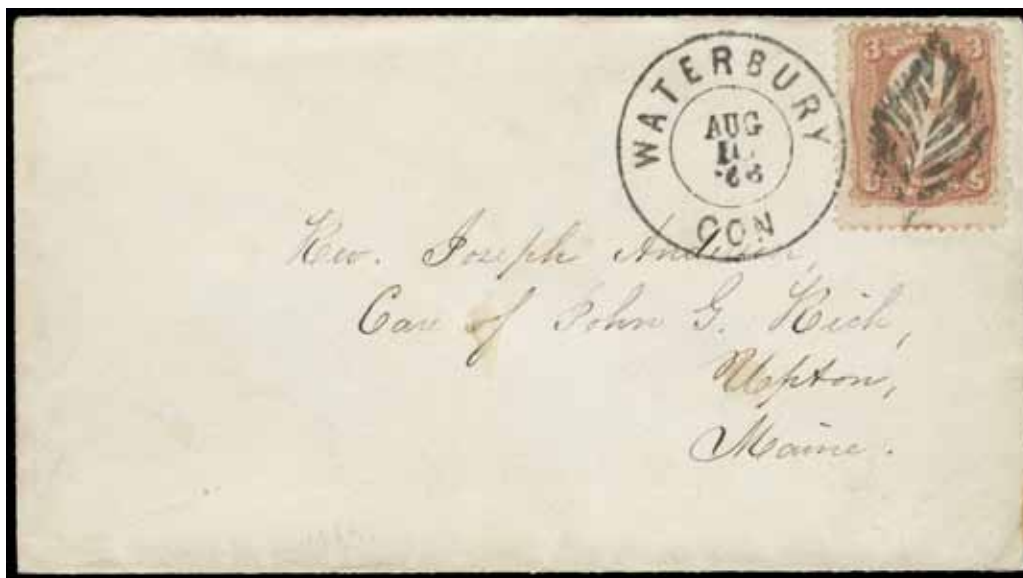 WATERBURY
AUG
'66
CON
3 3
Rev. Joseph
Care of John G. Rich,
Upton,
Maine.